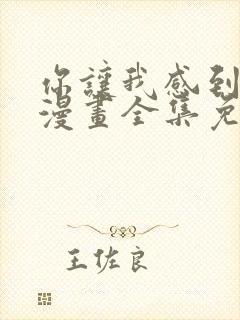 你讓我感到
漫畫全集免
王佐良